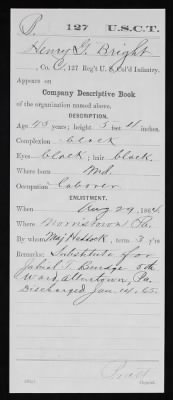 P. 127 U.S.C.T.
Henry G. Bright
, Co. C, 127 Reg't U. S. Col'd Infantry.
Appears on
Company Descriptive Book
of the organization named above.
DESCRIPTION.
Age 43 years; height 5 feet 4 inches.
Complexion black
Eyes black; hair black.
Where born Md.
Occupation Laborer
ENLISTMENT.
When Aug 29, 1864.
Where Norristown Pa.
By whom Maj Haddock, term 3 y'rs.
Remarks: Substitute for
T. 5th
Ward, Allentown, Pa.
Discharged Jan. 14. 65.
Copyist.